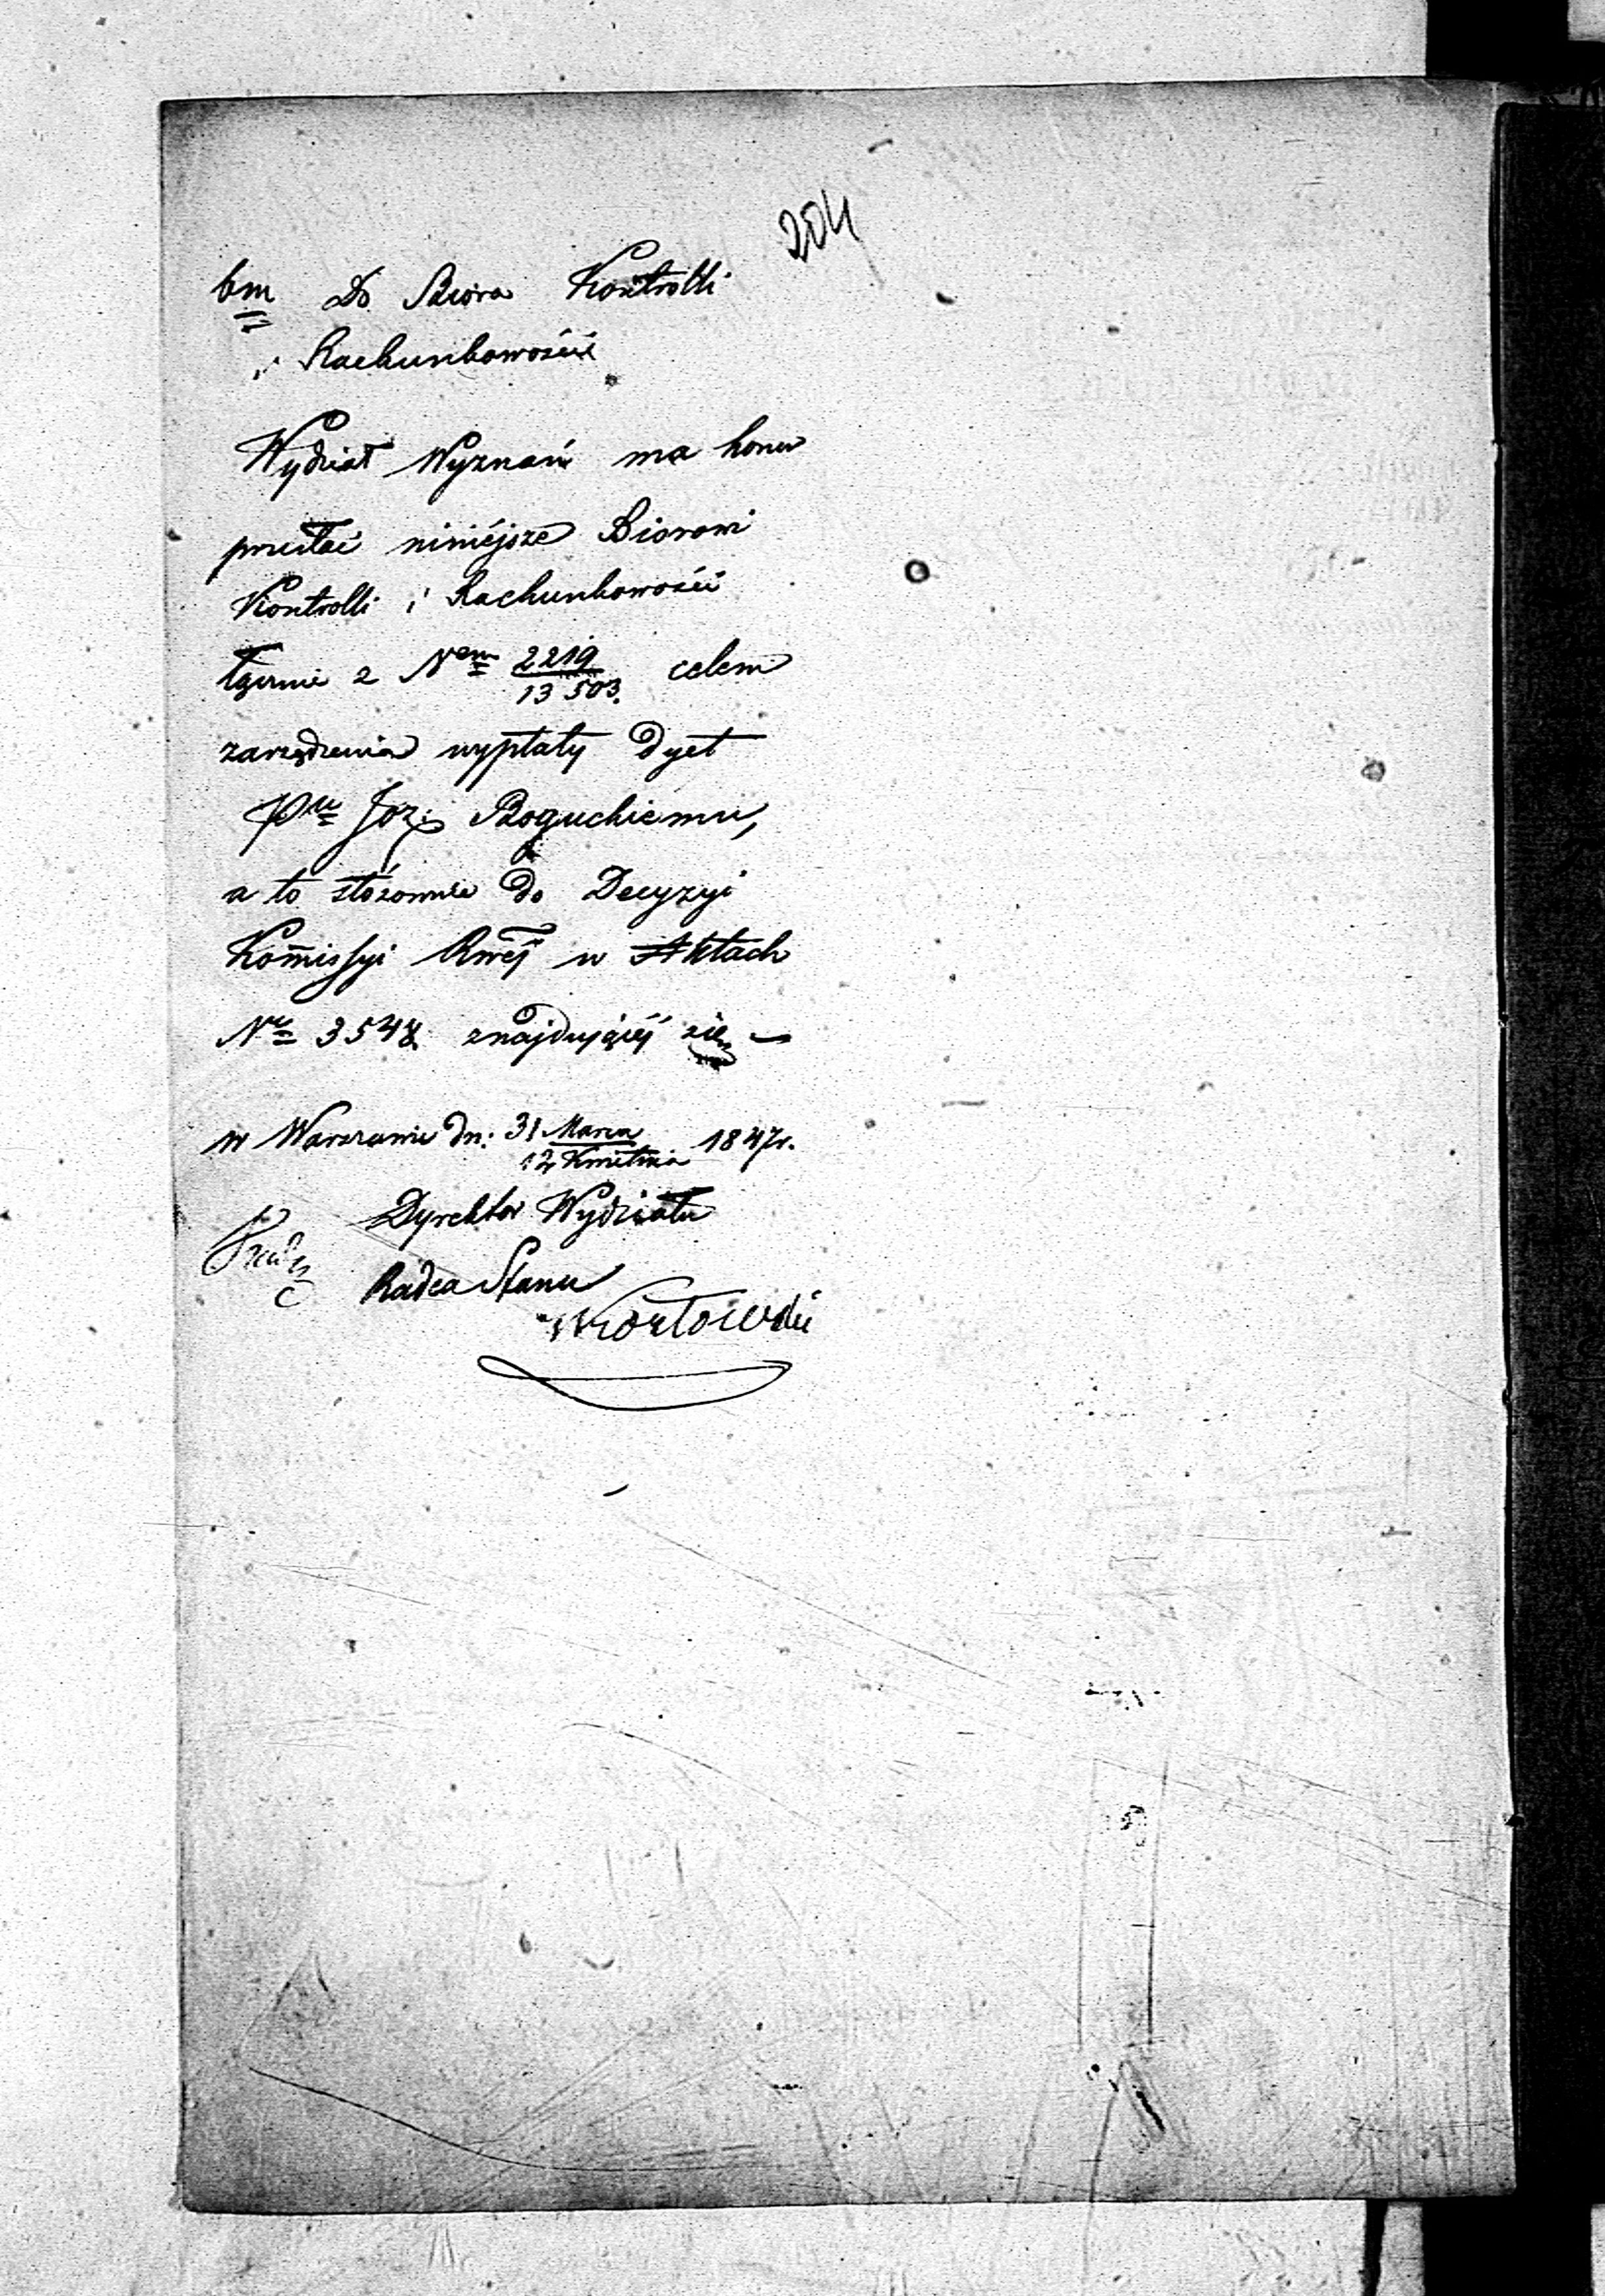 204
bm Do Bióra Kontrolli
i Rachunkowości
Wydział Wyznań ma honor
przesłać niniéjsze Biorowi
Kontrolli i Rachunkowości
łącznie z Nem 2219/13503. celem
zarządzenia wypłaty Dyet
Pnu Józ: Boguckiemu,
a to stósownie do Decyzyi
Kom̄issyi Rwéj w Aktach
Nru 3548. znajdującéj się. —
w Warszawie dn: 31 Marca/12 Kwietnia 1847r.
Dyrektor Wydziału
Radca Stanu